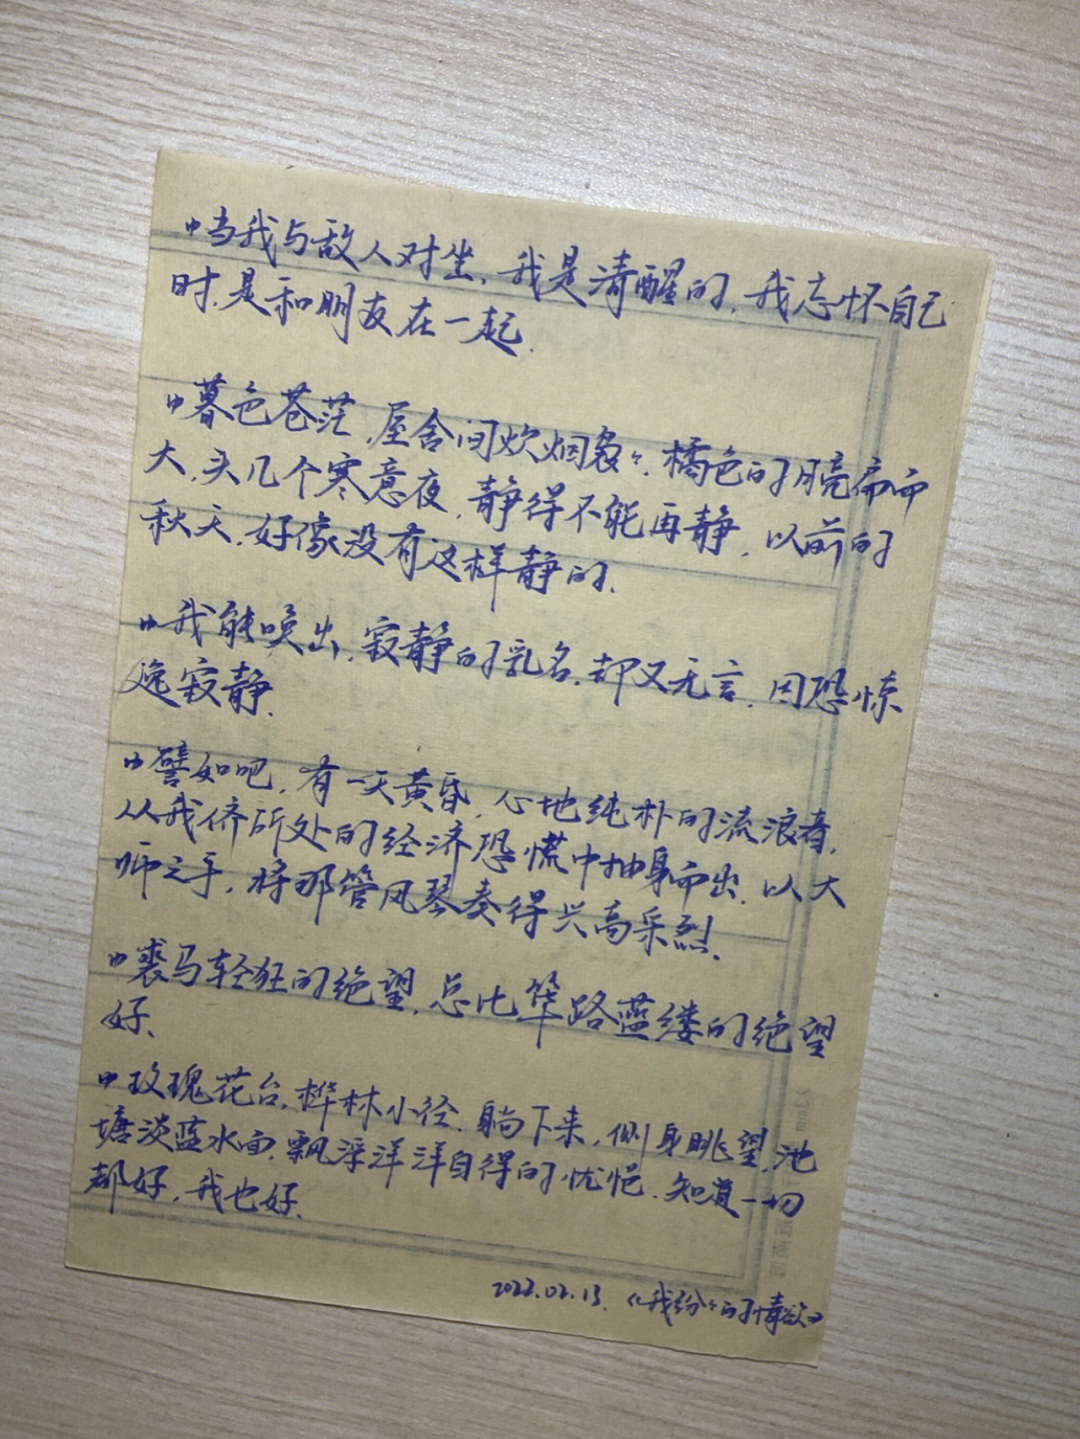 当我与敌人对坐，我是清醒的，我忘怀自己
时，是和朋友在一起.
暮色苍茫，屋舍间炊烟袅々. 橘色的月亮扁而
大，头几个寒意夜，静得不能再静，以前的
秋天，好像没有这样静的.
我能唤出，寂静的乳名，却又无言，因恐惊
逸寂静.
譬如吧，有一天黄昏，心地纯朴的流浪者，
从我侪所处的经济恐慌中抽身而出，以大
师之手，将那管风琴奏得兴高采烈.
裘马轻狂的绝望，总比筚路蓝缕的绝望
好.
玫瑰花台，桦林小径，躺下来，侧身眺望，池
塘淡蓝水面，飘浮洋洋自得的忧悒，知道一切
都好，我也好.
2022.02.13.《我纷々的情欲》